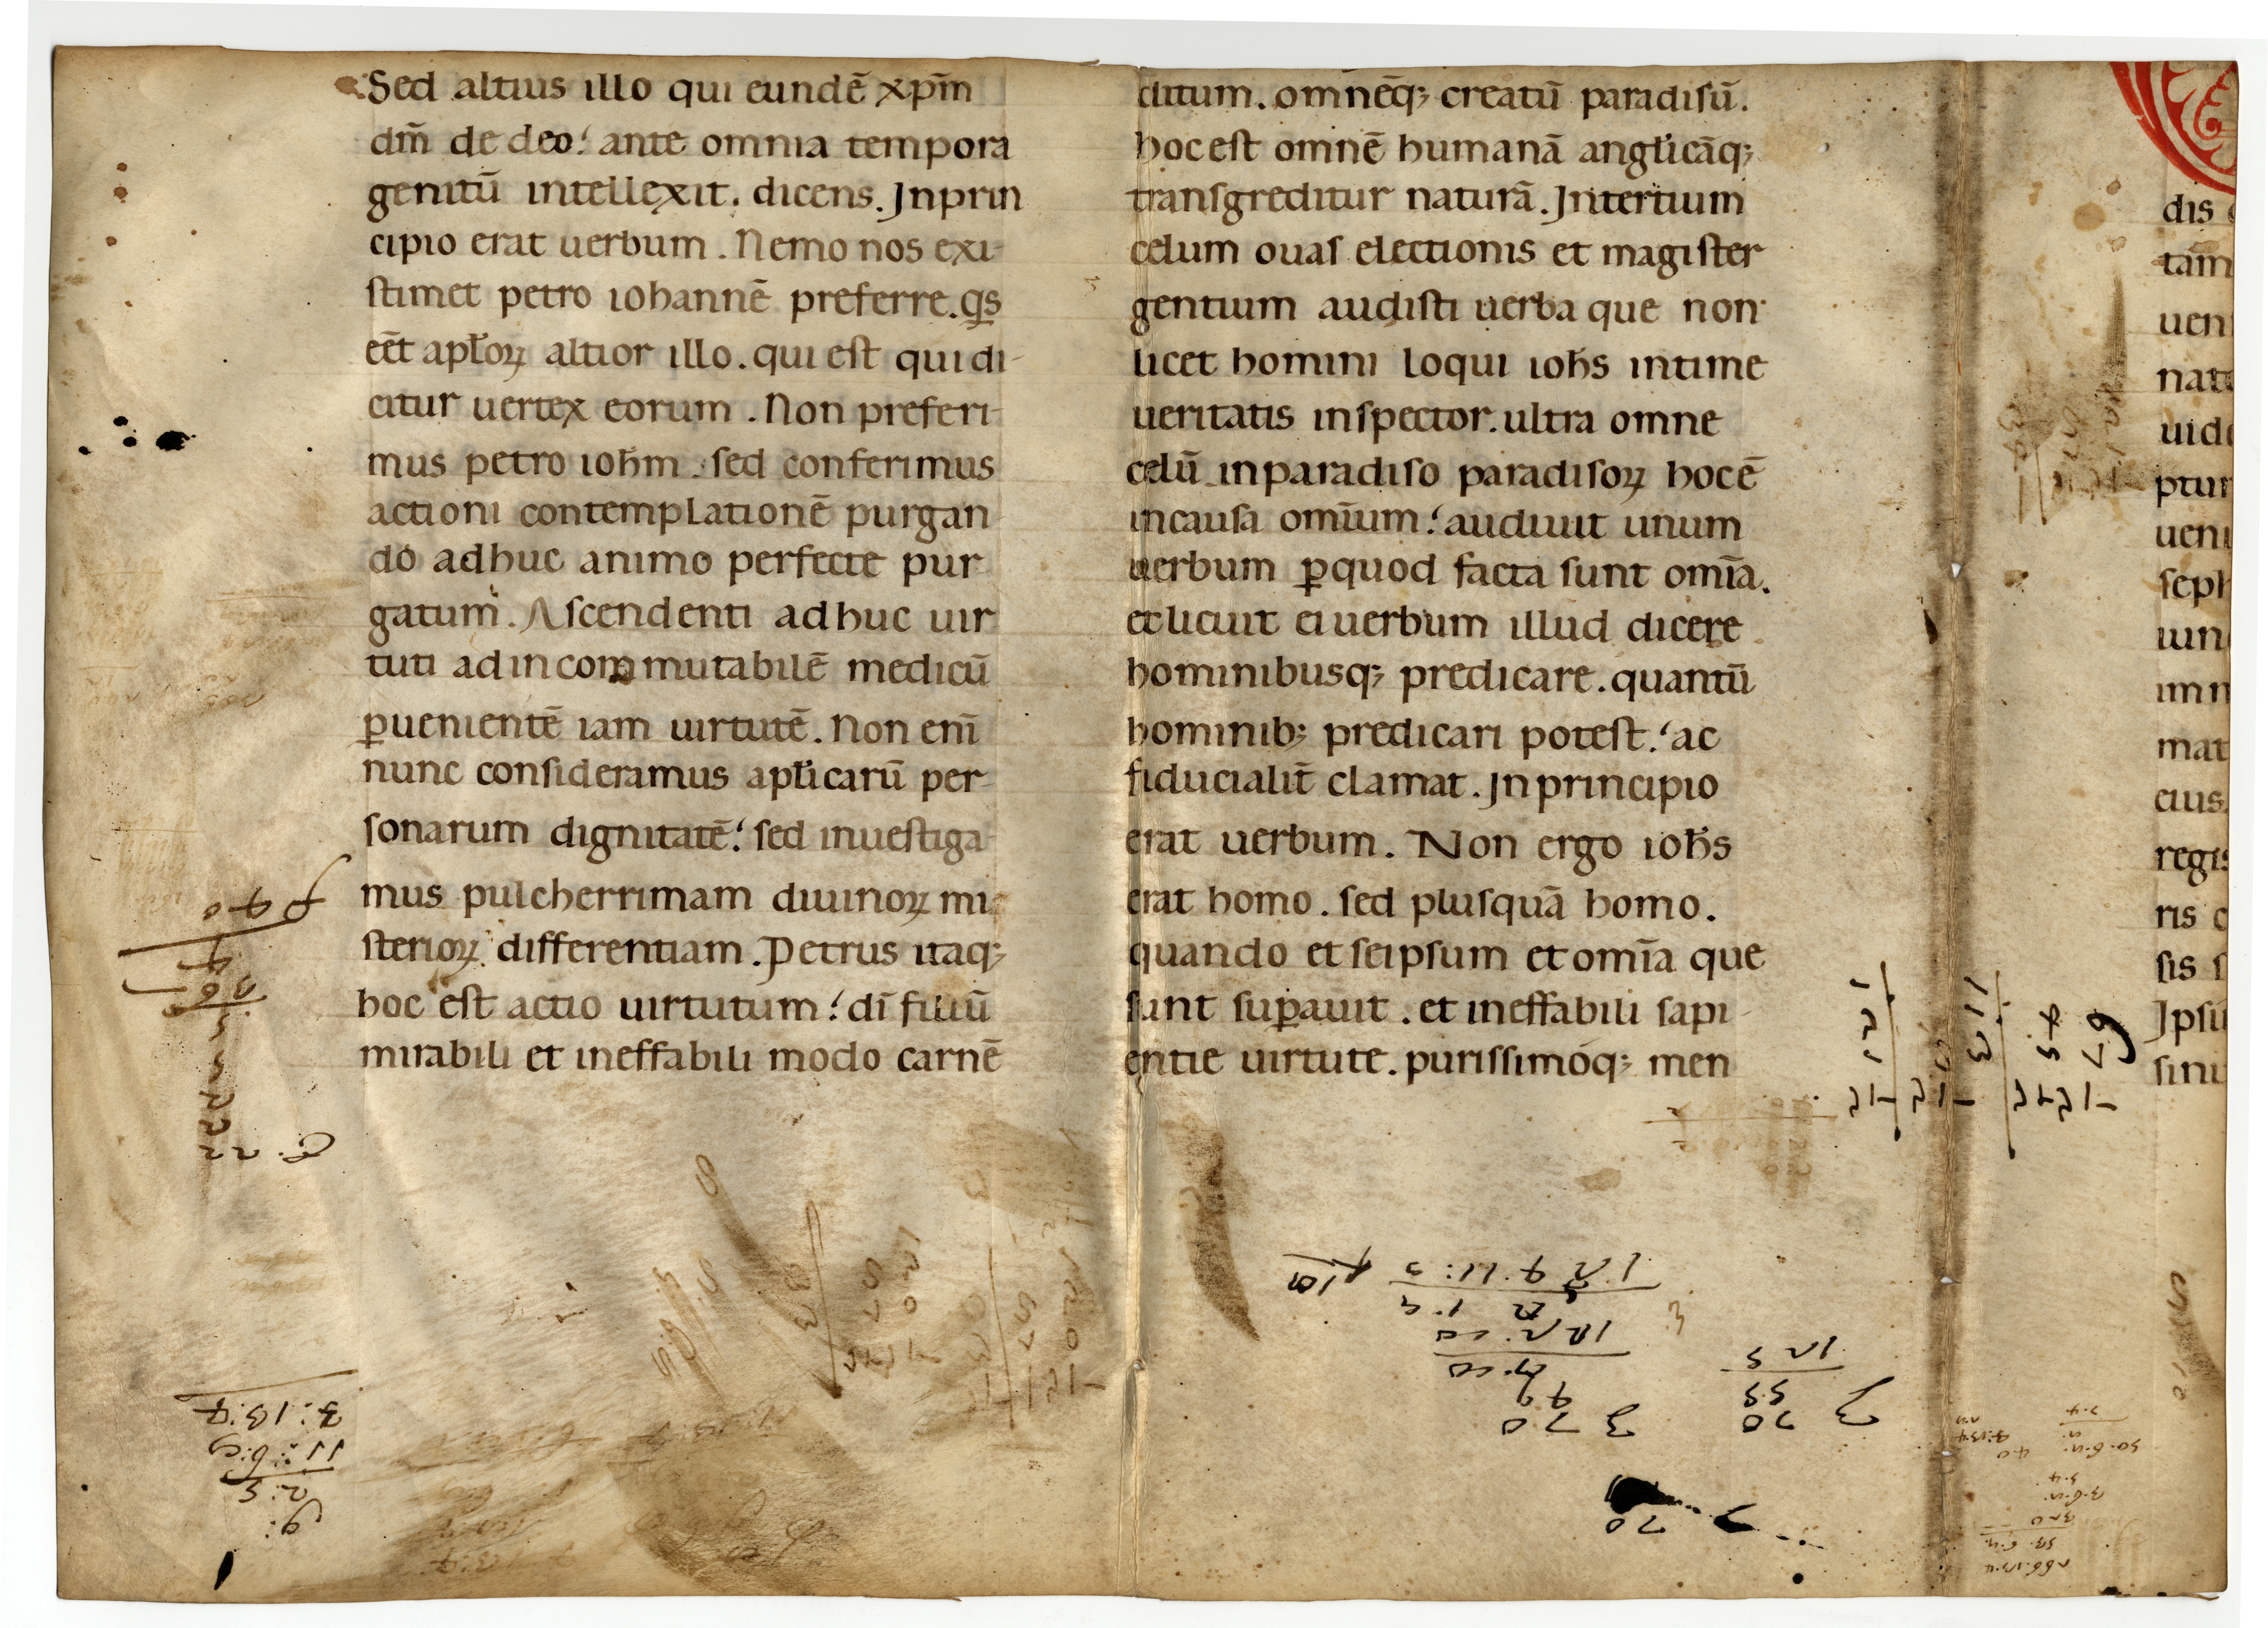 Sed altius illo qui eundē xp̄m
dm̄ de deo. ante omnia tempora
genitū intellexit. dicens. Jn prin
cipio erat uerbum. Nemo nos exi-
ſtimet petro iohannē preferre. q̄s
eēt apƚoꝝ altior illo. qui eſt qui di-
citur uertex eorum. Non preferi-
mus petro ioħm. ſed conferimus
actioni contemplationē purgan
do adhuc animo perfecte pur
gatum. Aſcendenti adhuc uir
tuti ad incommutabilē medicū
ꝑuenientē iam uirtutē. Non enī
nunc conſideramus apƚicarū per-
ſonarum dignitatē. ſed inueſtiga
mus pulcherrimam diuinoꝝ mi
ſterioꝝ differentiam. Petrus itaq;
hoc eſt actio uirtutum. dī filiū
mirabili et ineffabili modo carnē
ditum. omnēq; creatū paradiſū.
hoc eſt omnē humanā angƚicāq;
tranſgreditur naturā. Jn tertium
celum ouaſ electionis et magiſter
gentium audiſti uerba que non
licet homini loqui ioħs intime
ueritatis inſpector. ultra omne
celū in paradiſo paradiſoꝝ hoc ē
in cauſa omīum. audiuit unum
uerbum ꝑ quod facta ſunt omīa.
et licuit ei uerbum illud dicere
hominibusq; predicare. quantū
hominib; predicari poteſt. ac
fiducialit̄ clamat. Jn principio
erat uerbum. Non ergo ioħs
erat homo. ſed pluſquā homo.
quando et ſeipſum et omīa que
ſunt ſuꝑauit. et ineffabili ſapi-
entie uirtute. puriſſimoq; men
dis
tam
uen
nat
uid
ptur
ueni
ſeph
iun
im
mat
eius
regis
ris
ſis
Jpſu
ſinu